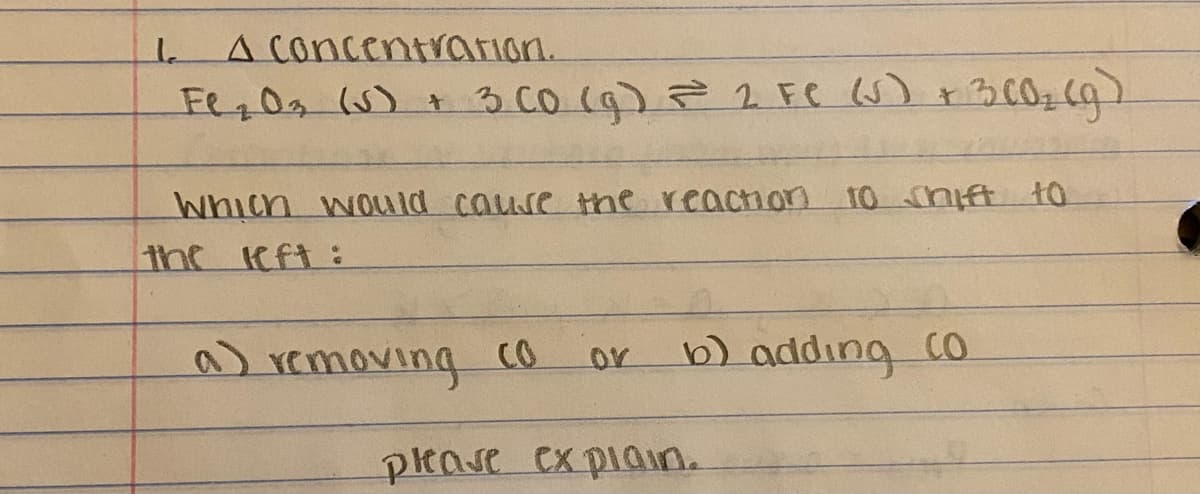 1. Δ concentration.
Fe₂O₃ (s) + 3 CO (g) ⇌ 2 Fe (s) + 3 CO₂ (g)
Which would cause the reaction to shift to
the left :
a) removing CO or b) adding CO
please explain.